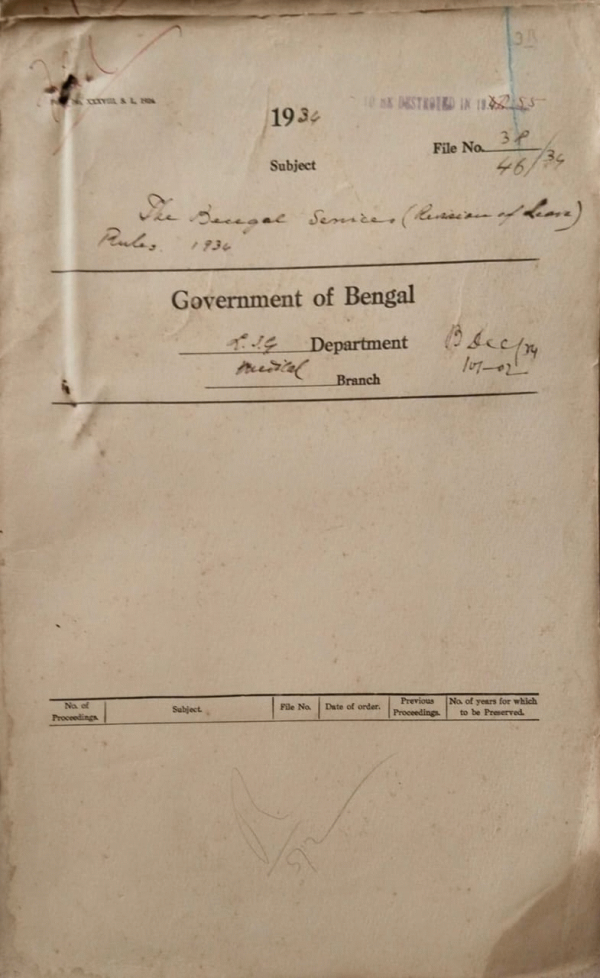 38
XXXVIII, S. L, 1924.
1934
TO BE DESTROYED IN 19
File No. 38
46/34
Subject
The Bengal Services (Revision of Leave)
Rules. 1934
Government of Bengal
L.S.G Department
B Dec/34
Medical Branch
No. of Proceedings. Subject. File No. Date of order. Previous Proceedings. No. of years for which to be Preserved.